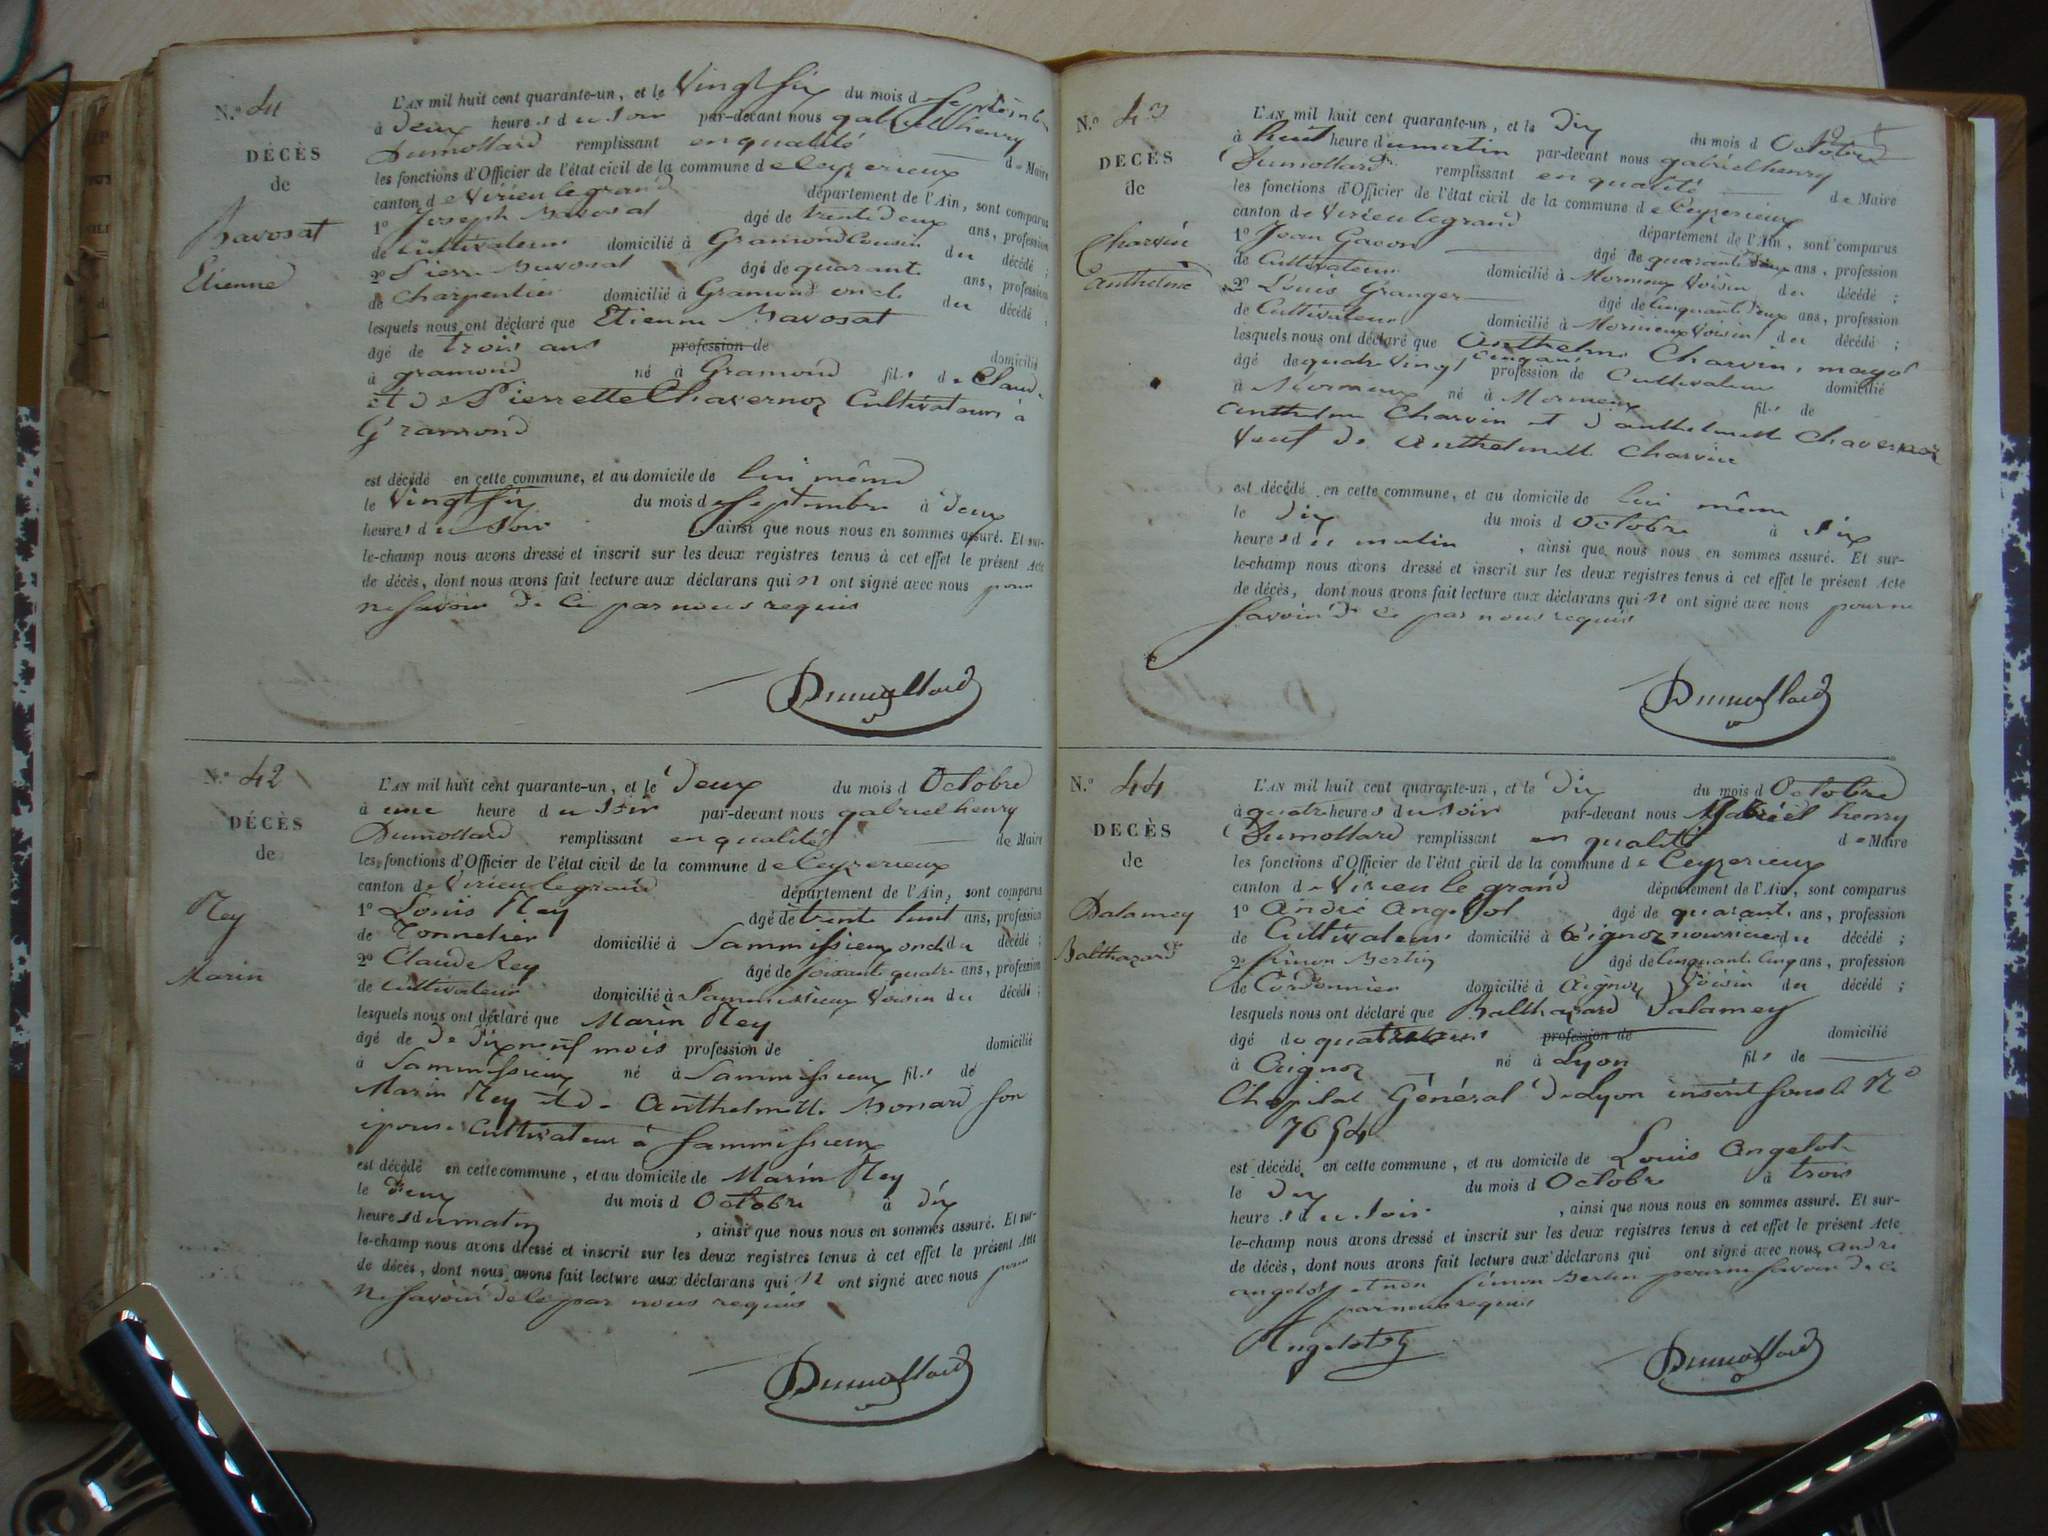 N.º 41
DÉCÈS
de
Bavosat
Etienne
L'AN mil huit cent quarante-un, et le Vingt six du mois de Septembre
à Deux heures du soir par-devant nous gabriel henry
Dumollard remplissant en qualité de Maire
les fonctions d'Officier de l'état civil de la commune de Ceyzerieux
canton de Virieu le grand département de l'Ain, sont comparus
1º Joseph Bavosat âgé de trente deux ans, profession
de Cultivateur domicilié à Gramond Cousin du décédé ;
2º Pierre Bavosat âgé de quarante ans, profession
de Charpentier domicilié à Gramond oncle du décédé ;
lesquels nous ont déclaré que Etienne Bavosat
âgé de trois ans profession de domicilié
à gramond né à Gramond fils de Claude
et de Pierrette Chavernoz Cultivateurs à
Gramond
est décédé en cette commune, et au domicile de lui même
le Vingt six du mois de Septembre à deux
heures du soir, ainsi que nous nous en sommes assuré. Et sur-
le-champ nous avons dressé et inscrit sur les deux registres tenus à cet effet le présent Acte
de décès, dont nous avons fait lecture aux déclarans qui n ont signé avec nous pour
ne savoir de ce par nous requis
Dumollard
N.º 42
DÉCÈS
de
Rey
Marin
L'AN mil huit cent quarante-un, et le Deux du mois d Octobre
à une heure du soir par-devant nous gabriel henry
Dumollard remplissant en qualité de Maire
les fonctions d'Officier de l'état civil de la commune de Ceyzerieux
canton de Virieu le grand département de l'Ain, sont comparus
1º Louis Rey âgé de trente huit ans, profession
de Tonnelier domicilié à Sammissieux oncle du décédé ;
2º Claude Rey âgé de soixante quatre ans, profession
de cultivateur domicilié à Sammissieux Voisin du décédé ;
lesquels nous ont déclaré que Marin Rey
âgé de De dix neuf mois profession de domicilié
à Sammissieux né à Sammissieux fils de
Marin Rey et de Anthelmette Bonard son
épouse Cultivateur à Sammissieux
est décédé en cette commune, et au domicile de Marin Rey
le Deux du mois d Octobre à dix
heures du matin, ainsi que nous nous en sommes assuré. Et sur-
le-champ nous avons dressé et inscrit sur les deux registres tenus à cet effet le présent Acte
de décès, dont nous avons fait lecture aux déclarans qui n ont signé avec nous pour
ne savoir de ce par nous requis
Dumollard
N.º 43
DÉCÈS
de
Charvin
Anthelme
L'AN mil huit cent quarante-un, et le Dix du mois d Octobre
à huit heure du matin par-devant nous gabriel henry
Dumollard remplissant en qualité de Maire
les fonctions d'Officier de l'état civil de la commune de Ceyzerieux
canton de Virieu le grand département de l'Ain, sont comparus
1º Jean Gacon âgé de quarante deux ans, profession
de Cultivateur domicilié à Mormieux Voisin du décédé ;
2º Louis Granger âgé de Cinquante deux ans, profession
de Cultivateur domicilié à Mormieux Voisin du décédé ;
lesquels nous ont déclaré que Anthelme Charvin,
âgé de quatre vingt cinq ans profession de Cultivateur domicilié
à Mormieux né à Mormieux fils de
anthelme Charvin et d'anthelmette Chavernoz
Veuf de Anthelmette Charvin
est décédé en cette commune, et au domicile de lui même
le Dix du mois d Octobre à six
heures du matin, ainsi que nous nous en sommes assuré. Et sur-
le-champ nous avons dressé et inscrit sur les deux registres tenus à cet effet le présent Acte
de décès, dont nous avons fait lecture aux déclarans qui n ont signé avec nous pour ne
savoir de ce par nous requis
Dumollard
N.º 44
DÉCÈS
de
Dalamey
Balthazard
L'AN mil huit cent quarante-un, et le Dix du mois d Octobre
à quatre heures du soir par-devant nous gabriel henry
Dumollard remplissant en qualité de Maire
les fonctions d'Officier de l'état civil de la commune de Ceyzerieux
canton de Virieu le grand département de l'Ain, sont comparus
1º André Angelot âgé de quarante ans, profession
de Cultivateur domicilié à Aignoz nourricier du décédé ;
2º Simon Bertin âgé de Cinquante Cinq ans, profession
de Cordonnier domicilié à Aignoz Voisin du décédé ;
lesquels nous ont déclaré que Balthazard Dalamey
âgé de quatre ans profession de domicilié
à Aignoz né à Lyon fils de
l'hopital Général de Lyon inscrit sous le Nº
7654
est décédé en cette commune, et au domicile de Louis Angelot
le Dix du mois d Octobre à trois
heures du soir, ainsi que nous nous en sommes assuré. Et sur-
le-champ nous avons dressé et inscrit sur les deux registres tenus à cet effet le présent Acte
de décès, dont nous avons fait lecture aux déclarans qui ont signé avec nous André
angelot et non Simon Bertin pour ne savoir de ce
par nous requis
Angelot
Dumollard